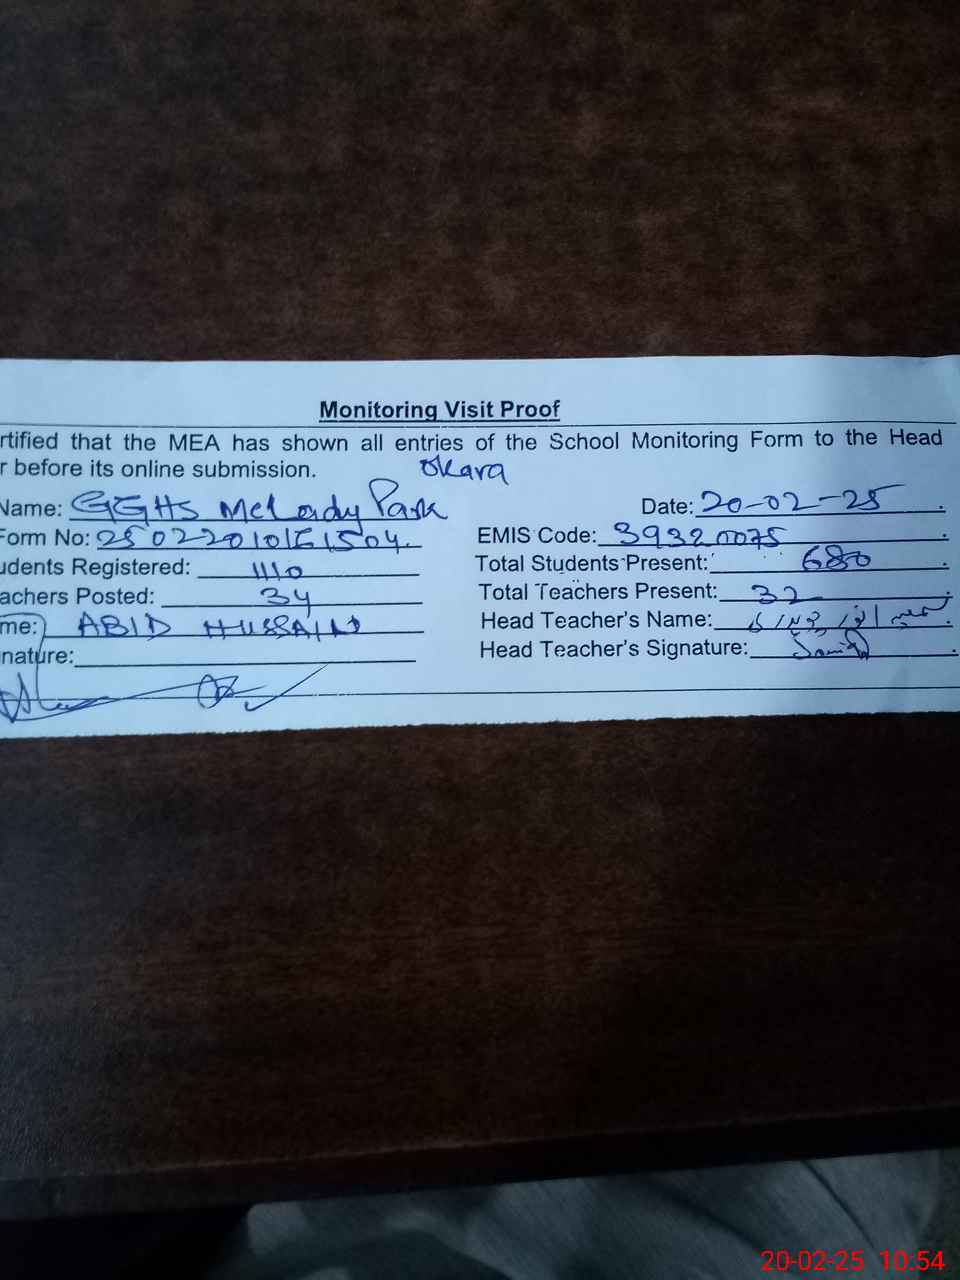 Monitoring Visit Proof
rtified that the MEA has shown all entries of the School Monitoring Form to the Head
r before its online submission. Okara
Name: GGHS McLady Park Date: 20-02-25
Form No: EMIS Code: 39320075
udents Registered: 1110 Total Students Present: 680
achers Posted: 34 Total Teachers Present: 32
me: ABID HUSSAIN Head Teacher's Name:
nature: Head Teacher's Signature:
20-02-25 10:54